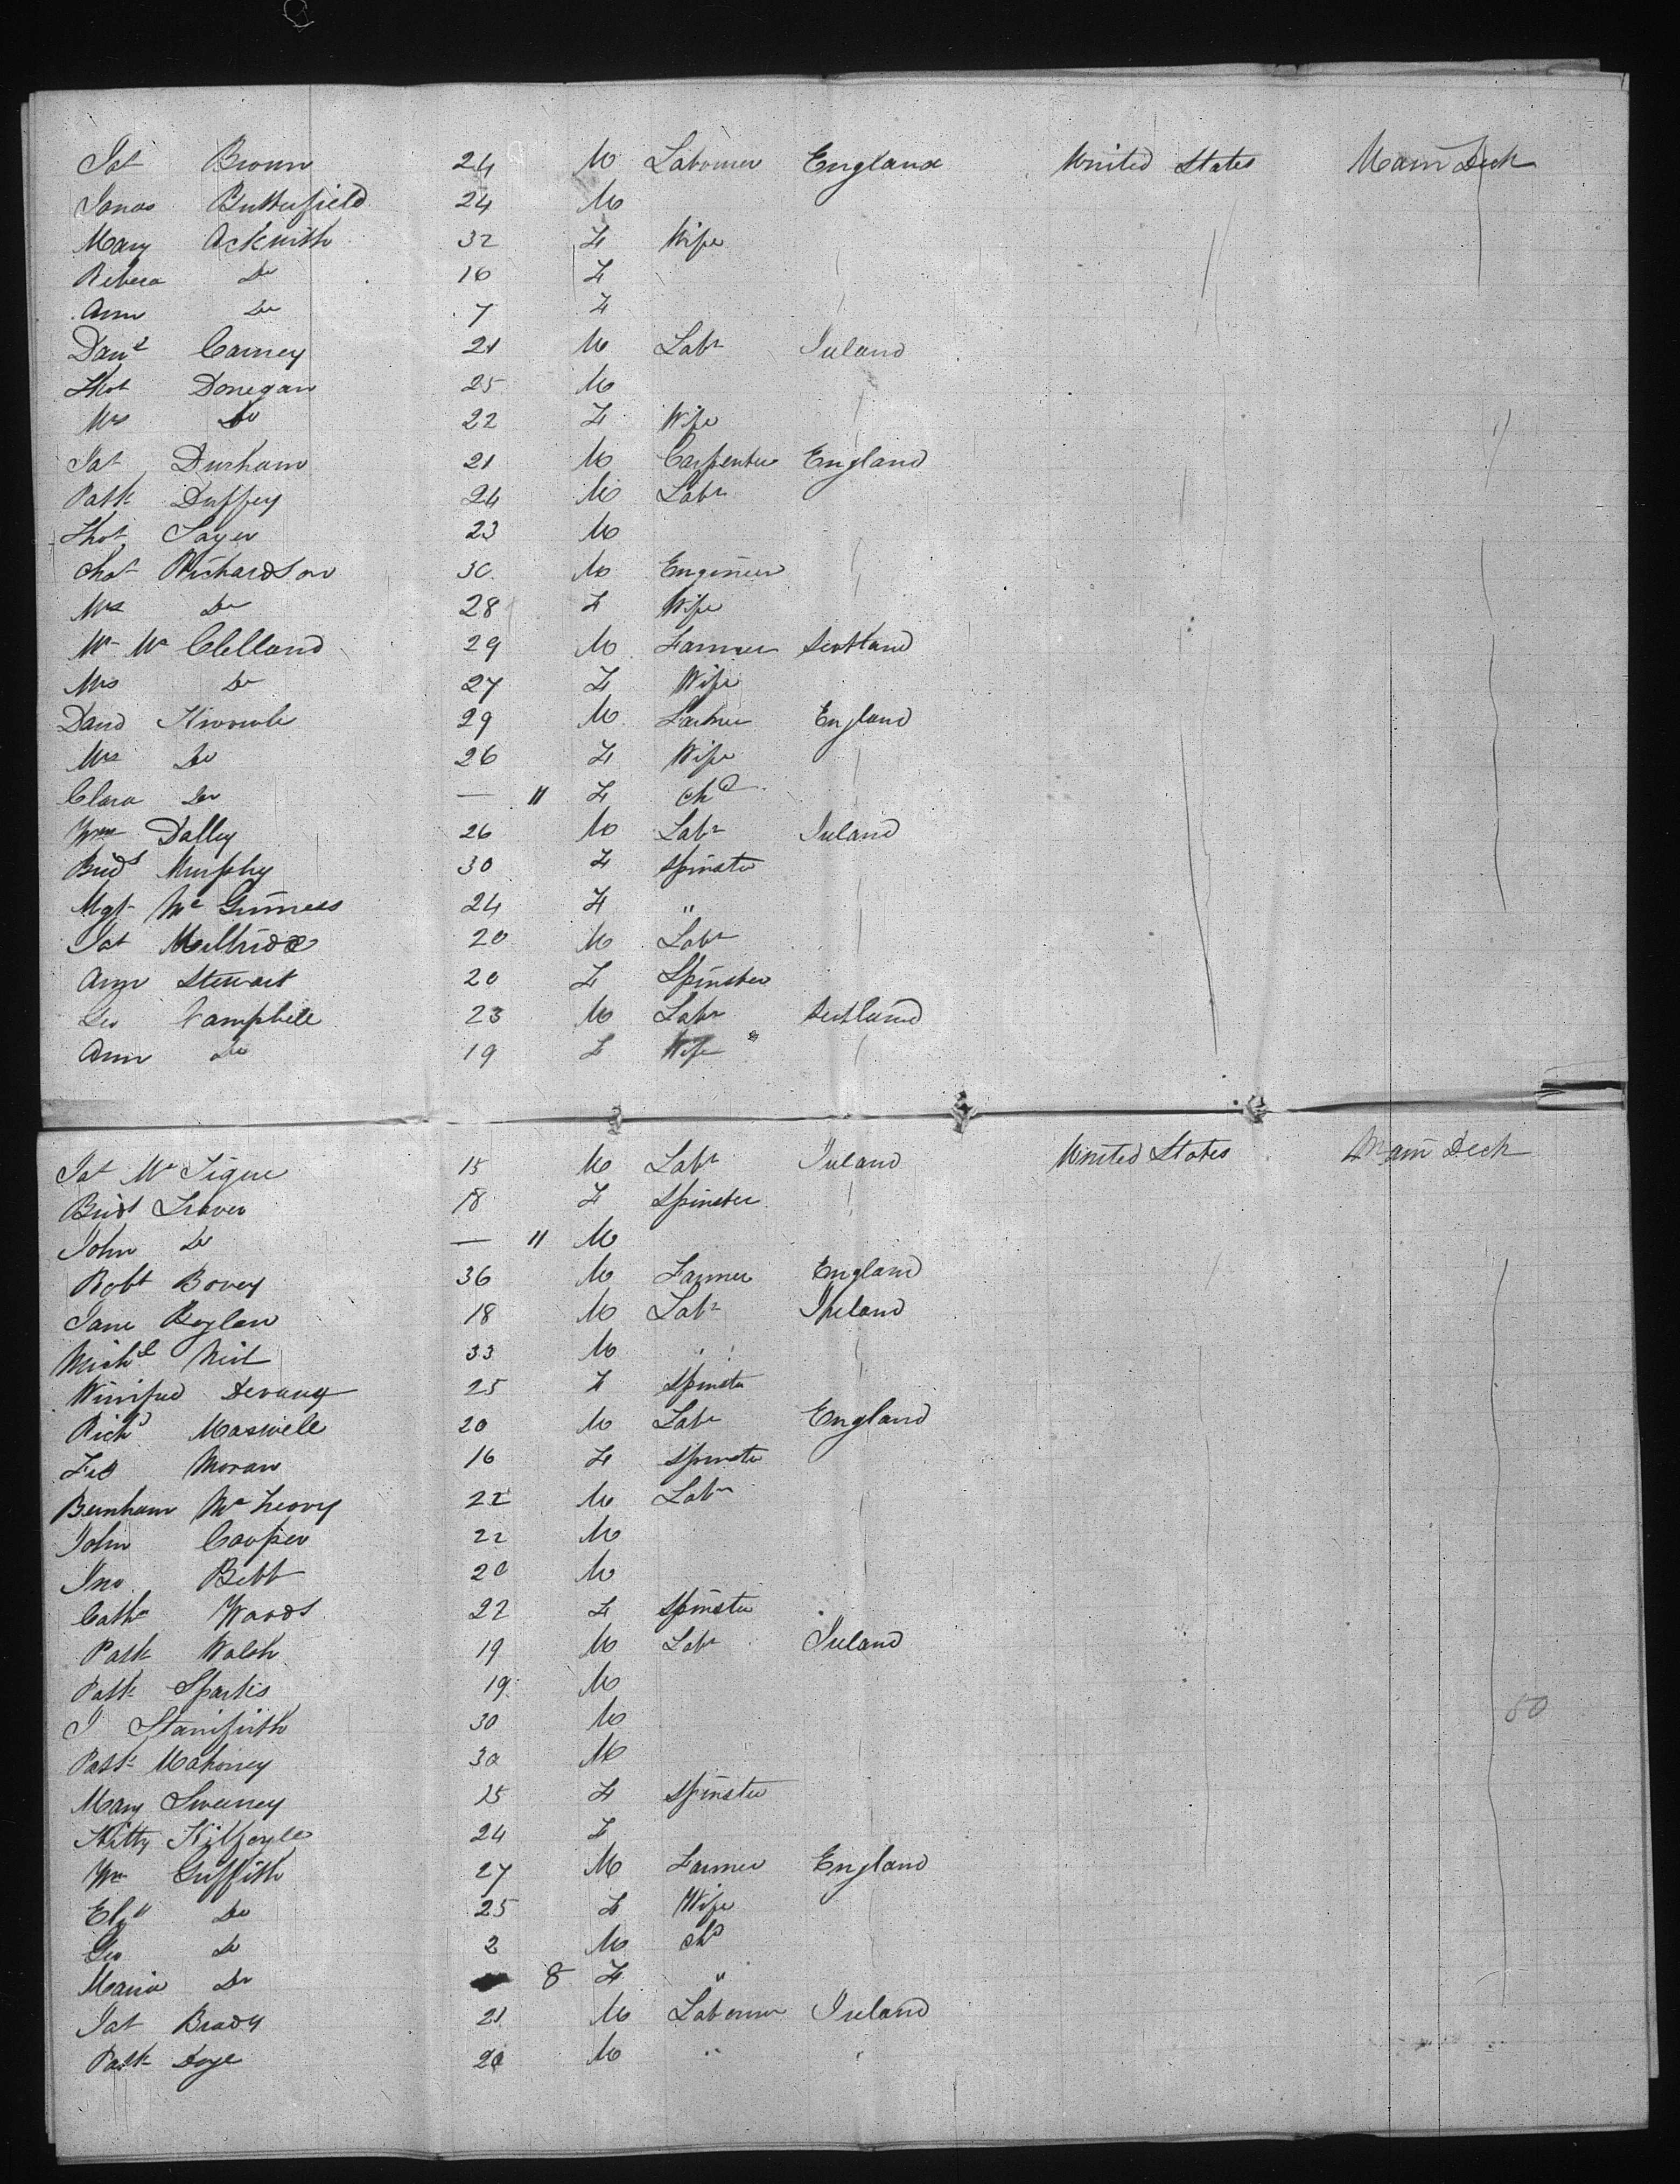 Jas Brown 24 M Labourer England United States Main Deck
Jonas Butterfield 24 M
Mary Ackwith 32 F Wife
Rebeca Do 16 F
Ann Do 7 F
Danl Carney 21 M Labr Ireland
Thos Donegan 25 M
Mrs Do 22 F Wife
Jas Durham 21 M Carpenter England
Patk Duffey 24 M Labr
Thos Sayer 23 M
Chas Richardson 30 M Engineer
Mrs Do 28 F Wife
Wm Mc Clelland 29 M Farmer Scotland
Mrs Do 27 F Wife
David 29 M Farmer England
Mrs Do 26 F Wife
Clara Do — 11 F chd
Wm Dalley 26 M Labr Ireland
Bridt Murphy 30 F Spinster
Mgt Mc Guiness 24 F "
Jas 20 M Labr
Ann Stewart 20 F Spinster
Geo Campbell 23 M Labr Scotland
Ann Do 19 F Wife "
Jas Mc Tigue 15 M Labr Ireland United States Main Deck
Bridt 18 F Spinster
John Do — 11 M
Robt Bovey 36 M Farmer England
Jane Boylan 18 M Labr Ireland
Michl 33 M
Winifred Devany 25 F Spinster
Richd Maxwell 20 M Labr England
Moran 16 F Spinster
Mc 22 M Labr
John Cooper 22 M
Jno Bebb 20 M
Cathe Woods 22 F Spinster
Patk Walsh 19 M Labr Ireland
Patk Sparks 19 M
J 30 M
Patk Mahoney 30 M
Mary Sweeney 25 F Spinster
Kitty Kilfoyle 24 F
Wm Griffith 27 M Farmer England
Elzh Do 25 F Wife
Geo Do 2 M chd
Maria Do 8 F "
Jas Brady 21 M Labourer Ireland
Patk 20 M "
50